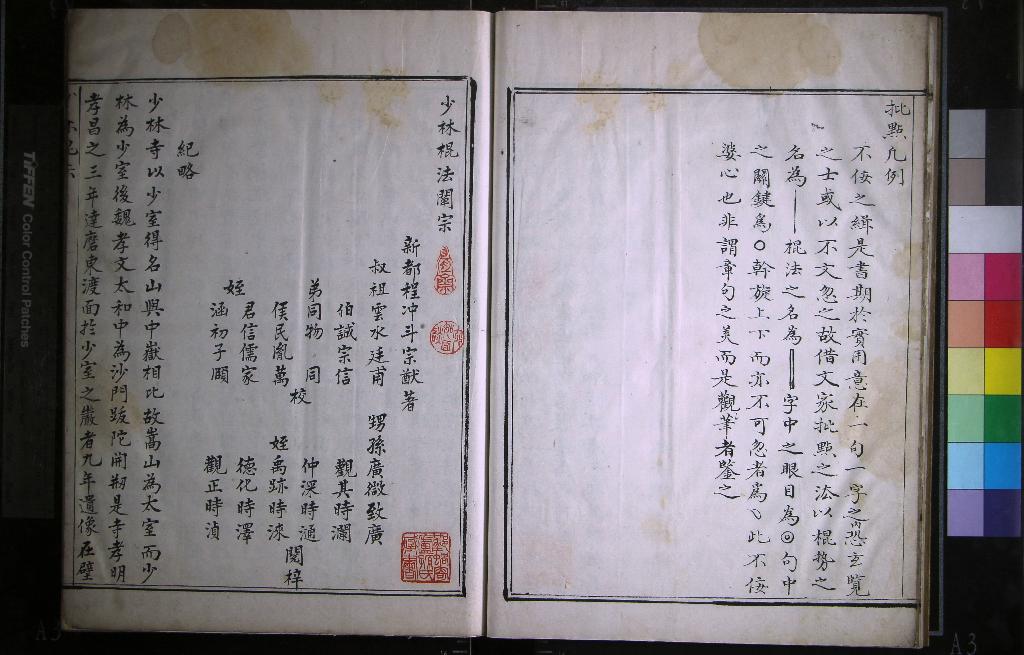 批點凡例
不佞之緝是書期於實用意在一句一字之間恐玄覽
之士或以不文忽之故借文家批點之法以棍勢之
名為——棍法之名為——字中之眼目為◎句中
之關鍵為○幹旋上下而亦不可忽者為丶此不佞
婆心也非謂章句之美而是觀筆者鑒之
少林棍法闡宗
新都程冲斗宗猷著
叔祖雲水廷甫 甥孫廣微致廣
伯誠宗信 觀其時瀾
弟同物 同 仲深時通
侯民胤萬 校 姪禹跡時淶 閱梓
姪君信儒家 德化時澤
涵初子頤 觀正時湞
紀略
少林寺以少室得名山與中嶽相比故嵩山為太室而少
林為少室後魏孝文太和中為沙門跋陀開剏是寺孝明
孝昌之三年達磨東渡面於少室之巖者九年遺像在壁
TIFFEN Color Control Patches
A3
A3